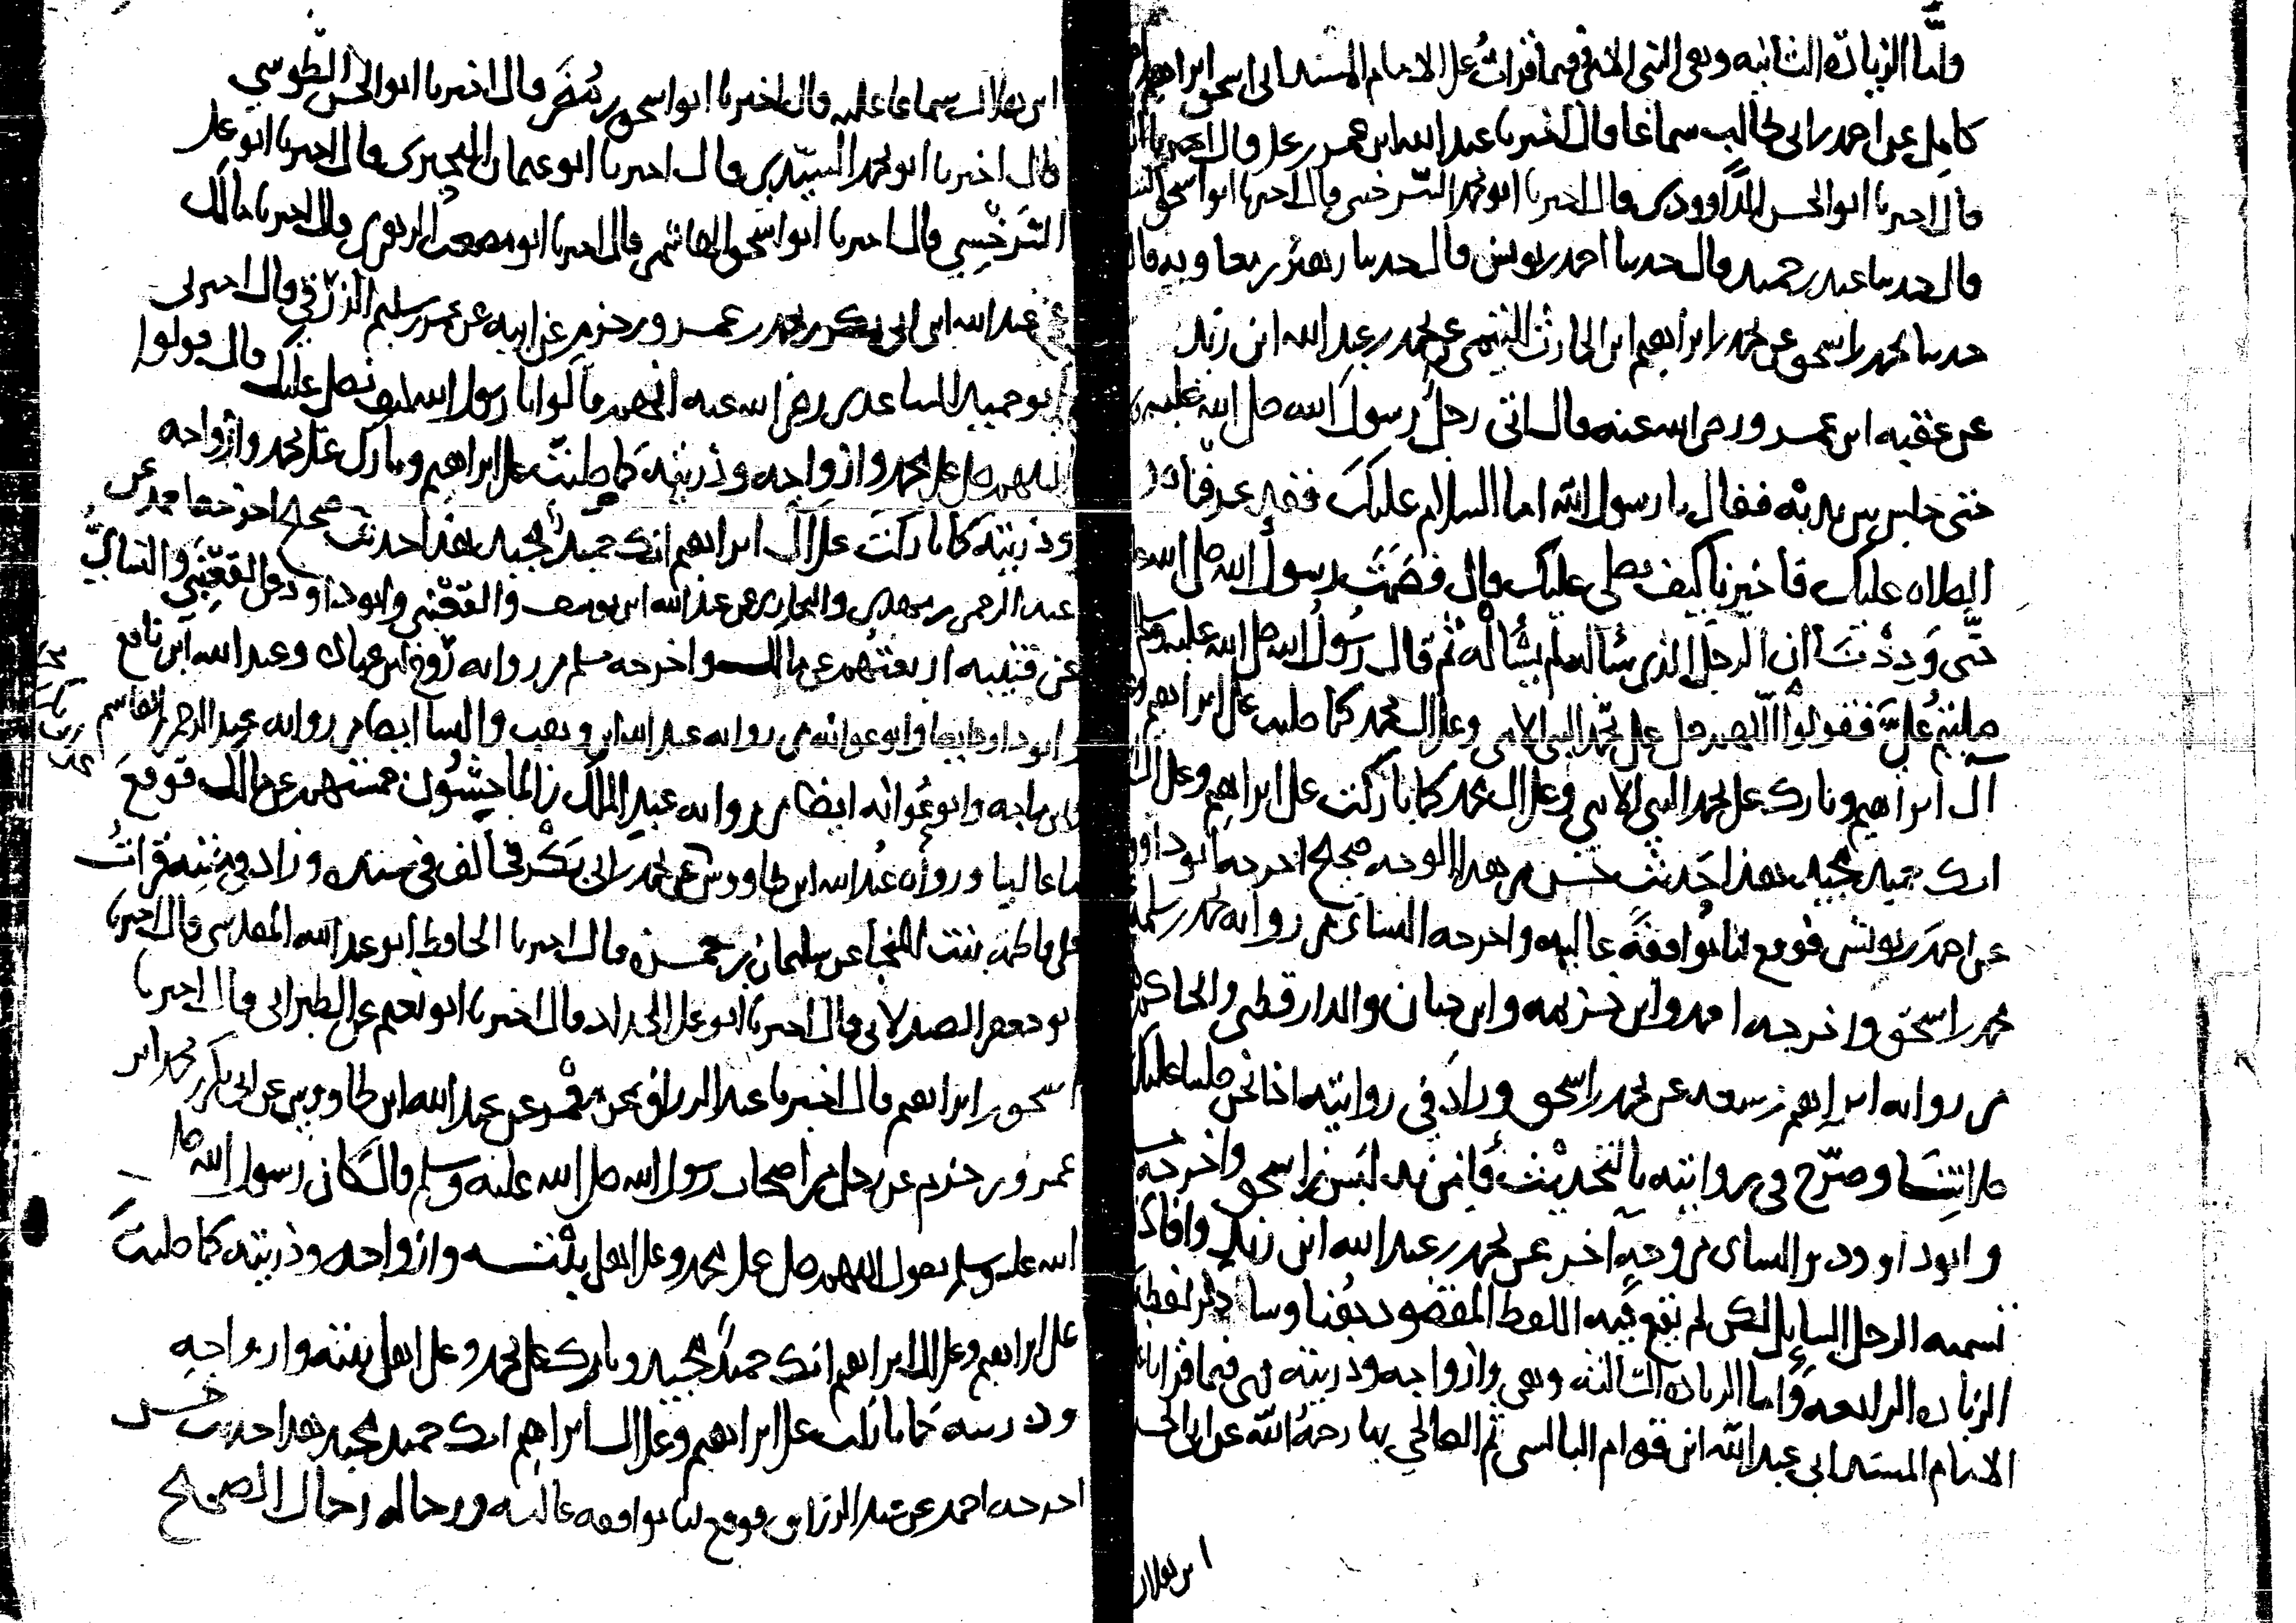 وأما الزيادة الثانية وهي النبي الأمي فيما قرأت على الإمام المسند أبي إسحق إبراهيم
كامل عن أحمد بن أبي طالب سماعا قال أخبرنا عبد الله ابن عمر بن علي قال أخبرنا
قال أخبرنا أبو الحسن الداوودي قال أخبرنا أبو محمد السرخسي قال أخبرنا أبو إسحق
قال حدثنا عبد بن حميد قال حدثنا أحمد بن يونس قال حدثنا زهير بن معاوية قال
حدثنا محمد بن إسحق عن محمد بن إبراهيم ابن الحارث التيمي عن محمد بن عبد الله ابن زيد
عن عقبة ابن عمرو رضي الله عنه قال أتى رجل رسول الله صلى الله عليه
حتى جلس بين يديه فقال يا رسول الله أما السلام عليك فقد عرفناه
الصلاة عليك فأخبرنا كيف نصلي عليك قال فصمت رسول الله صلى الله
حتى وددت أن الرجل الذي سأله لم يسأله ثم قال رسول الله صلى الله عليه وسلم
صليتم علي فقولوا اللهم صل على محمد النبي الأمي وعلى آل محمد كما صليت على إبراهيم
آل إبراهيم وبارك على محمد النبي الأمي وعلى آل محمد كما باركت على إبراهيم وعلى آل
إنك حميد مجيد هذا حديث حسن من هذا الوجه صحيح أخرجه أبو داود
عن أحمد بن يونس فوقع لنا موافقة عالية وأخرجه النسائي من رواية محمد بن سلمة
محمد بن إسحق وأخرجه أحمد وابن خزيمة وابن حبان والدارقطني والحاكم
من رواية إبراهيم بن سعد عن محمد بن إسحق وزاد في روايته إذا نحن صلينا عليك
صلاتنا وصرح في روايته بالتحديث فأمن تدليس ابن إسحق وأخرجه
وأبو داود والنسائي من وجه آخر عن محمد بن عبد الله ابن زيد وأفاد
تسمية الرجل السائل لكن لم يقع فيه اللفظ المقصود هنا وسأذكر لفظه
الزيادة الرابعة وأما الزيادة الثالثة وهي وأزواجه وذريته فهي فيما قرأنا
الإمام المسند أبي عبد الله ابن قوام البالسي ثم الصالحي بها رحمه الله عن أبي الحسن
ابن هلال
ابن هلال سماعا عليه قال أخبرنا أبو إسحق بن مضر قال أخبرنا أبو الحسن الطوسي
قال أخبرنا أبو محمد السيدي قال أخبرنا أبو عثمان البحيري قال أخبرنا أبو علي
السرخسي قال أخبرنا أبو إسحق الهاشمي قال أخبرنا أبو مصعب الزهري قال أخبرنا مالك
عن عبد الله ابن أبي بكر بن محمد بن عمرو بن حزم عن أبيه عن عمرو بن سليم الزرقي قال أخبرني
أبو حميد الساعدي رضي الله عنه أنهم قالوا يا رسول الله كيف نصلي عليك قال قولوا
اللهم صل على محمد وأزواجه وذريته كما صليت على إبراهيم وبارك على محمد وأزواجه
وذريته كما باركت على آل إبراهيم إنك حميد مجيد هذا حديث صحيح أخرجه أحمد عن
عبد الرحمن بن مهدي والبخاري عن عبد الله ابن يوسف والقعنبي وأبو داود عن القعنبي والنسائي
عن قتيبة أربعتهم عن مالك وأخرجه مسلم من رواية روح ابن عبادة وعبد الله ابن نافع
وأبو داود أيضا وأبو عوانة من رواية عبد الله ابن وهب والنسائي أيضا من رواية عبد الرحمن بن القاسم
وابن ماجه وأبو عوانة أيضا من رواية عبد الملك بن الماجشون خمستهم عن مالك فوقع
لنا عاليا ورواه عبد الله ابن طاووس عن محمد بن أبي بكر فخالف في سنده وزاد في متنه قرأت
على فاطمة بنت المنجا عن سليمان بن حمزة قال أخبرنا الحافظ أبو عبد الله المقدسي قال أخبرنا
أبو جعفر الصيدلاني قال أخبرنا أبو علي الحداد قال أخبرنا أبو نعيم عن الطبراني قال أخبرنا
إسحق بن إبراهيم قال أخبرنا عبد الرزاق عن معمر عن عبد الله ابن طاووس عن أبي بكر بن محمد ابن
عمرو بن حزم عن رجل من أصحاب رسول الله صلى الله عليه وسلم قال كان رسول الله صلى
الله عليه وسلم يقول اللهم صل على محمد وعلى أهل بيته وأزواجه وذريته كما صليت
على إبراهيم وعلى آل إبراهيم إنك حميد مجيد وبارك على محمد وعلى أهل بيته وأزواجه
وذريته كما باركت على إبراهيم وعلى آل إبراهيم إنك حميد مجيد هذا حديث حسن
أخرجه أحمد عن عبد الرزاق فوقع لنا موافقة عالية ورجاله رجال الصحيح